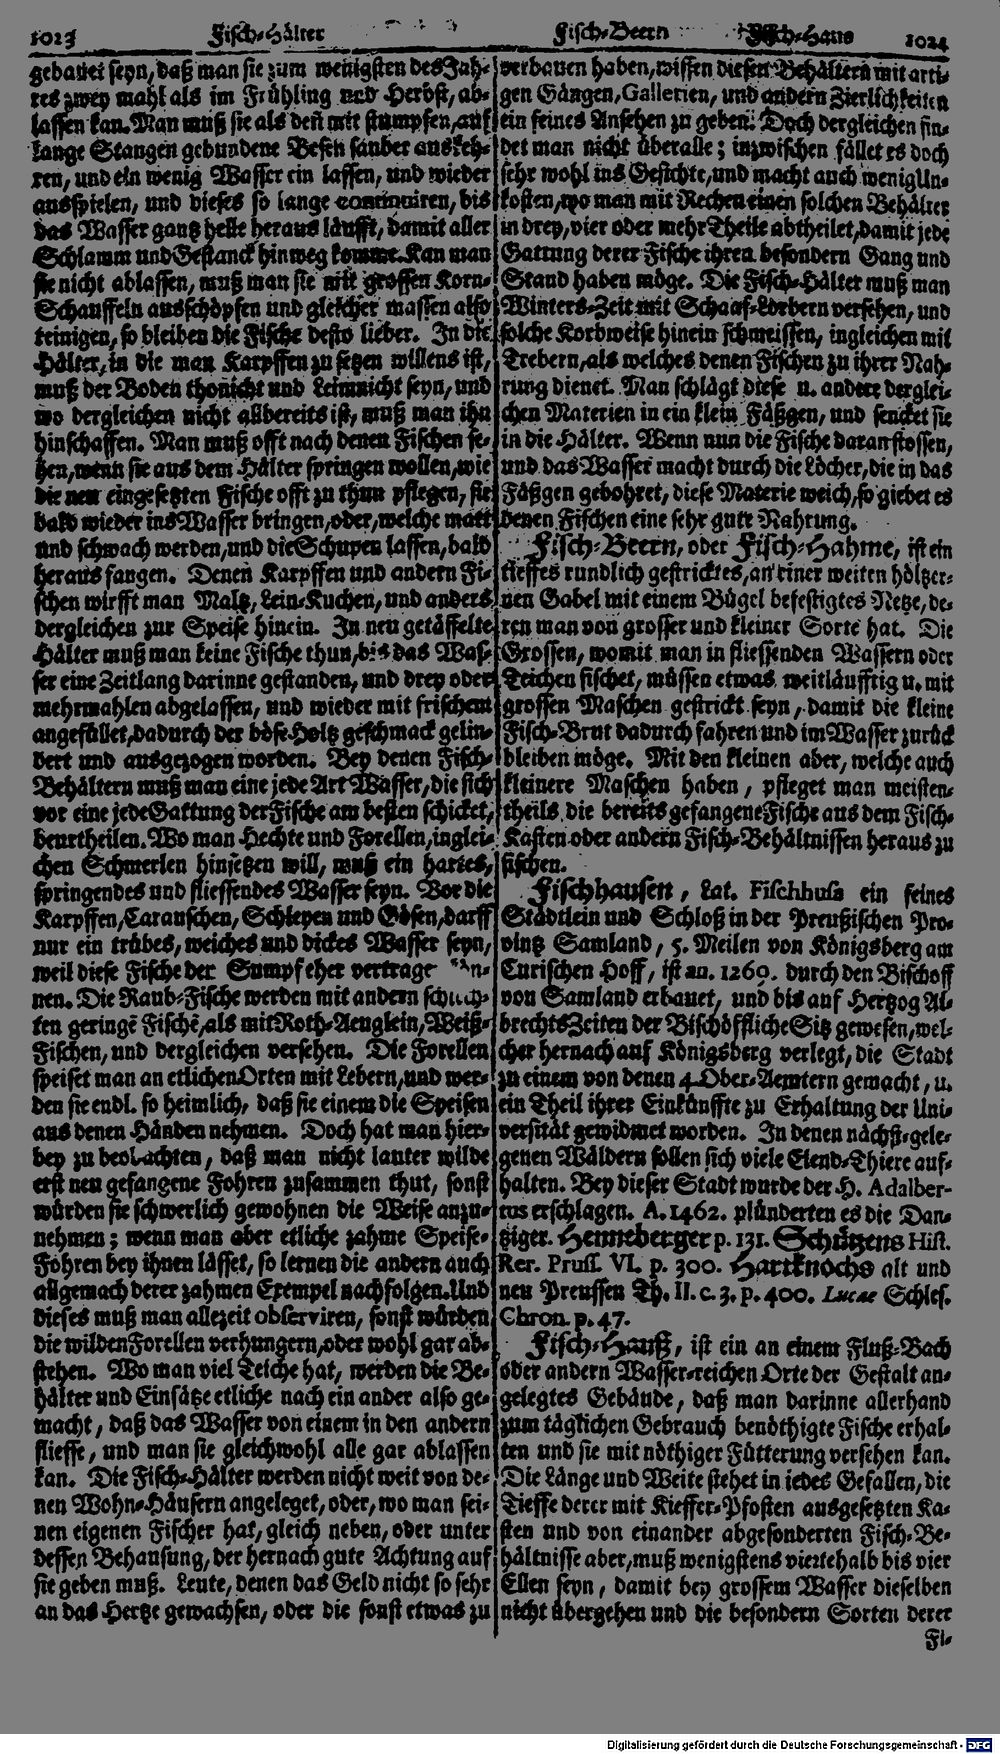 1023 Fisch-Hälter
Fisch-Beern Fisch-Haus 1024
gebauet seyn, daß man sie zum wenigsten des Jah-
res zwey mahl als im Frühling und Herbst, ab-
lassen kan. Man muß sie als deñ mit stumpfen, auf
lange Stangen gebundene Besen sauber auskeh-
ren, und ein wenig Wasser ein lassen, und wieder
ausspielen, und dieses so lange continuiren, bis
das Wasser gantz helle heraus läufft, damit aller
Schlamm und Gestanck hinweg komme. Kan man
sie nicht ablassen, muß man sie mit grossen Korn-
Schauffeln ausschöpfen und gleicher massen also
reinigen, so bleiben die Fische desto lieber. In die
Hälter, in die man Karpffen zu setzen willens ist,
muß der Boden thonicht und Leimnicht seyn, und
wo dergleichen nicht allbereits ist, muß man ihn
hinschaffen. Man muß offt nach denen Fischen se-
hen, wenn sie aus dem Hälter springen wollen, wie
die neu eingesetzten Fische offt zu thun pflegen, sie
bald wieder ins Wasser bringen, oder, welche matt
und schwach werden, und die Schupen lassen, bald
heraus fangen. Denen Karpffen und andern Fi-
schen wirfft man Maltz, Lein-Kuchen, und anders
dergleichen zur Speise hinein. In neu getäffelte
Hälter muß man keine Fische thun, bis das Was-
ser eine Zeitlang darinne gestanden, und drey oder
mehrmahlen abgelassen, und wieder mit frischem
angefüllet, dadurch der böse Holtz geschmack gelin-
dert und ausgezogen worden. Bey denen Fisch-
Behältern muß man eine jede Art Wasser, die sich
vor eine jede Gattung der Fische am besten schicket,
beurtheilen. Wo man Hechte und Forellen, inglei-
chen Schmerlen hinsetzen will, muß ein hartes,
springendes und fliessendes Wasser seyn. Vor die
Karpffen, Carauschen, Schleyen und Gösen, darff
nur ein trübes, weiches und dickes Wasser seyn,
weil diese Fische der Sumpf eher vertrage kön-
nen. Die Raub-Fische werden mit andern schlech-
ten geringē Fischē, als mit Roth-Aeuglein, Weiß-
Fischen, und dergleichen versehen. Die Forellen
speiset man an etlichen Orten mit Lebern, und wer-
den sie endl. so heimlich, daß sie einem die Speisen
aus denen Händen nehmen. Doch hat man hier-
bey zu beobachten, daß man nicht lauter wilde
erst neu gefangene Fohren zusammen thut, sonst
würden sie schwerlich gewohnen die Weise anzu-
nehmen; wenn man aber etliche zahme Speise-
Fohren bey ihnen lässet, so lernen die andern auch
allgemach derer zahmen Exempel nachfolgen. Und
dieses muß man allezeit observiren, sonst würden
die wilden Forellen verhungern, oder wohl gar ab-
stehen. Wo man viel Teiche hat, werden die Be-
hälter und Einsätze etliche nach ein ander also ge-
macht, daß das Wasser von einem in den andern
fliesse, und man sie gleichwohl alle gar ablassen
kan. Die Fisch-Hälter werden nicht weit von de-
nen Wohn-Häusern angeleget, oder, wo man sei-
nen eigenen Fischer hat, gleich neben, oder unter
dessen Behausung, der hernach gute Achtung auf
sie geben muß. Leute, denen das Geld nicht so sehr
an das Hertze gewachsen, oder die sonst etwas zu
verbauen haben, wissen diesen Behältern mit arti-
gen Gängen, Gallerien, und andern Zierlichkeiten
ein feines Ansehen zu geben. Doch dergleichen fin-
det man nicht überalle; inzwischen fället es doch
sehr wohl ins Gesichte, und macht auch wenig Un-
kosten, wo man mit Rechen einen solchen Behälter
in drey, vier oder mehr Theile abtheilet, damit jede
Gattung derer Fische ihren besondern Gang und
Stand haben möge. Die Fisch-Hälter muß man
Winters-Zeit mit Schaaf-Lorbern versehen, und
solche Korbweise hinein schmeissen, ingleichen mit
Trebern, als welches denen Fischen zu ihrer Nah-
rung dienet. Man schlägt diese u. andere derglei-
chen Materien in ein klein Fäßgen, und sencket sie
in die Hälter. Wenn nun die Fische daran stossen,
und das Wasser macht durch die Löcher, die in das
Fäßgen gebohret, diese Materie weich, so giebet es
denen Fischen eine sehr gute Nahrung.
Fisch-Beern, oder Fisch-Hahme, ist ein
tieffes rundlich gestricktes, an einer weiten höltzer-
nen Gabel mit einem Bügel befestigtes Netze, de-
ren man von grosser und kleiner Sorte hat. Die
Grossen, womit man in fliessenden Wassern oder
Teichen fischet, müssen etwas weitläufftig u. mit
grossen Maschen gestrickt seyn, damit die kleine
Fisch-Brut dadurch fahren und im Wasser zurück
bleiben möge. Mit den kleinen aber, welche auch
kleinere Maschen haben, pfleget man meisten-
theils die bereits gefangene Fische aus dem Fisch-
Kasten oder andern Fisch-Behältnissen heraus zu
fischen.
Fischhausen, Lat. Fischhusa ein feines
Städtlein und Schloß in der Preußischen Pro-
vintz Samland, 5. Meilen von Königsberg am
Curischen Hoff, ist an. 1269. durch den Bischoff
von Samland erbauet, und bis auf Hertzog Al-
brechts Zeiten der Bischöffliche Sitz gewesen, wel-
cher hernach auf Königsberg verlegt, die Stadt
zu einem von denen 4 Ober-Aemtern gemacht, u.
ein Theil ihrer Einkünffte zu Erhaltung der Uni-
versität gewidmet worden. In denen nächst-gele-
genen Wäldern sollen sich viele Elend-Thiere auf-
halten. Bey dieser Stadt wurde der H. Adalber-
tus erschlagen. A. 1462. plünderten es die Dan-
tziger. Henneberger p. 131. Schützens Hist.
Rer. Pruss. VI. p. 300. Hartknochs alt und
neu Preussen Th. II. c. 3. p. 400. Lucae Schles.
Chron. p. 47.
Fisch-Hauß, ist ein an einem Fluß-Bach
oder andern Wasser-reichen Orte der Gestalt an-
gelegtes Gebäude, daß man darinne allerhand
zum täglichen Gebrauch benöthigte Fische erhal-
ten und sie mit nöthiger Fütterung versehen kan.
Die Länge und Weite stehet in jedes Gefallen, die
Tieffe derer mit Kieffer-Pfosten ausgesetzten Ka-
sten und von einander abgesonderten Fisch-Be-
hältnisse aber, muß wenigstens viertehalb bis vier
Ellen seyn, damit bey grossem Wasser dieselben
nicht übergehen und die besondern Sorten derer
Fi-
Digitalisierung gefördert durch die Deutsche Forschungsgemeinschaft - DFG